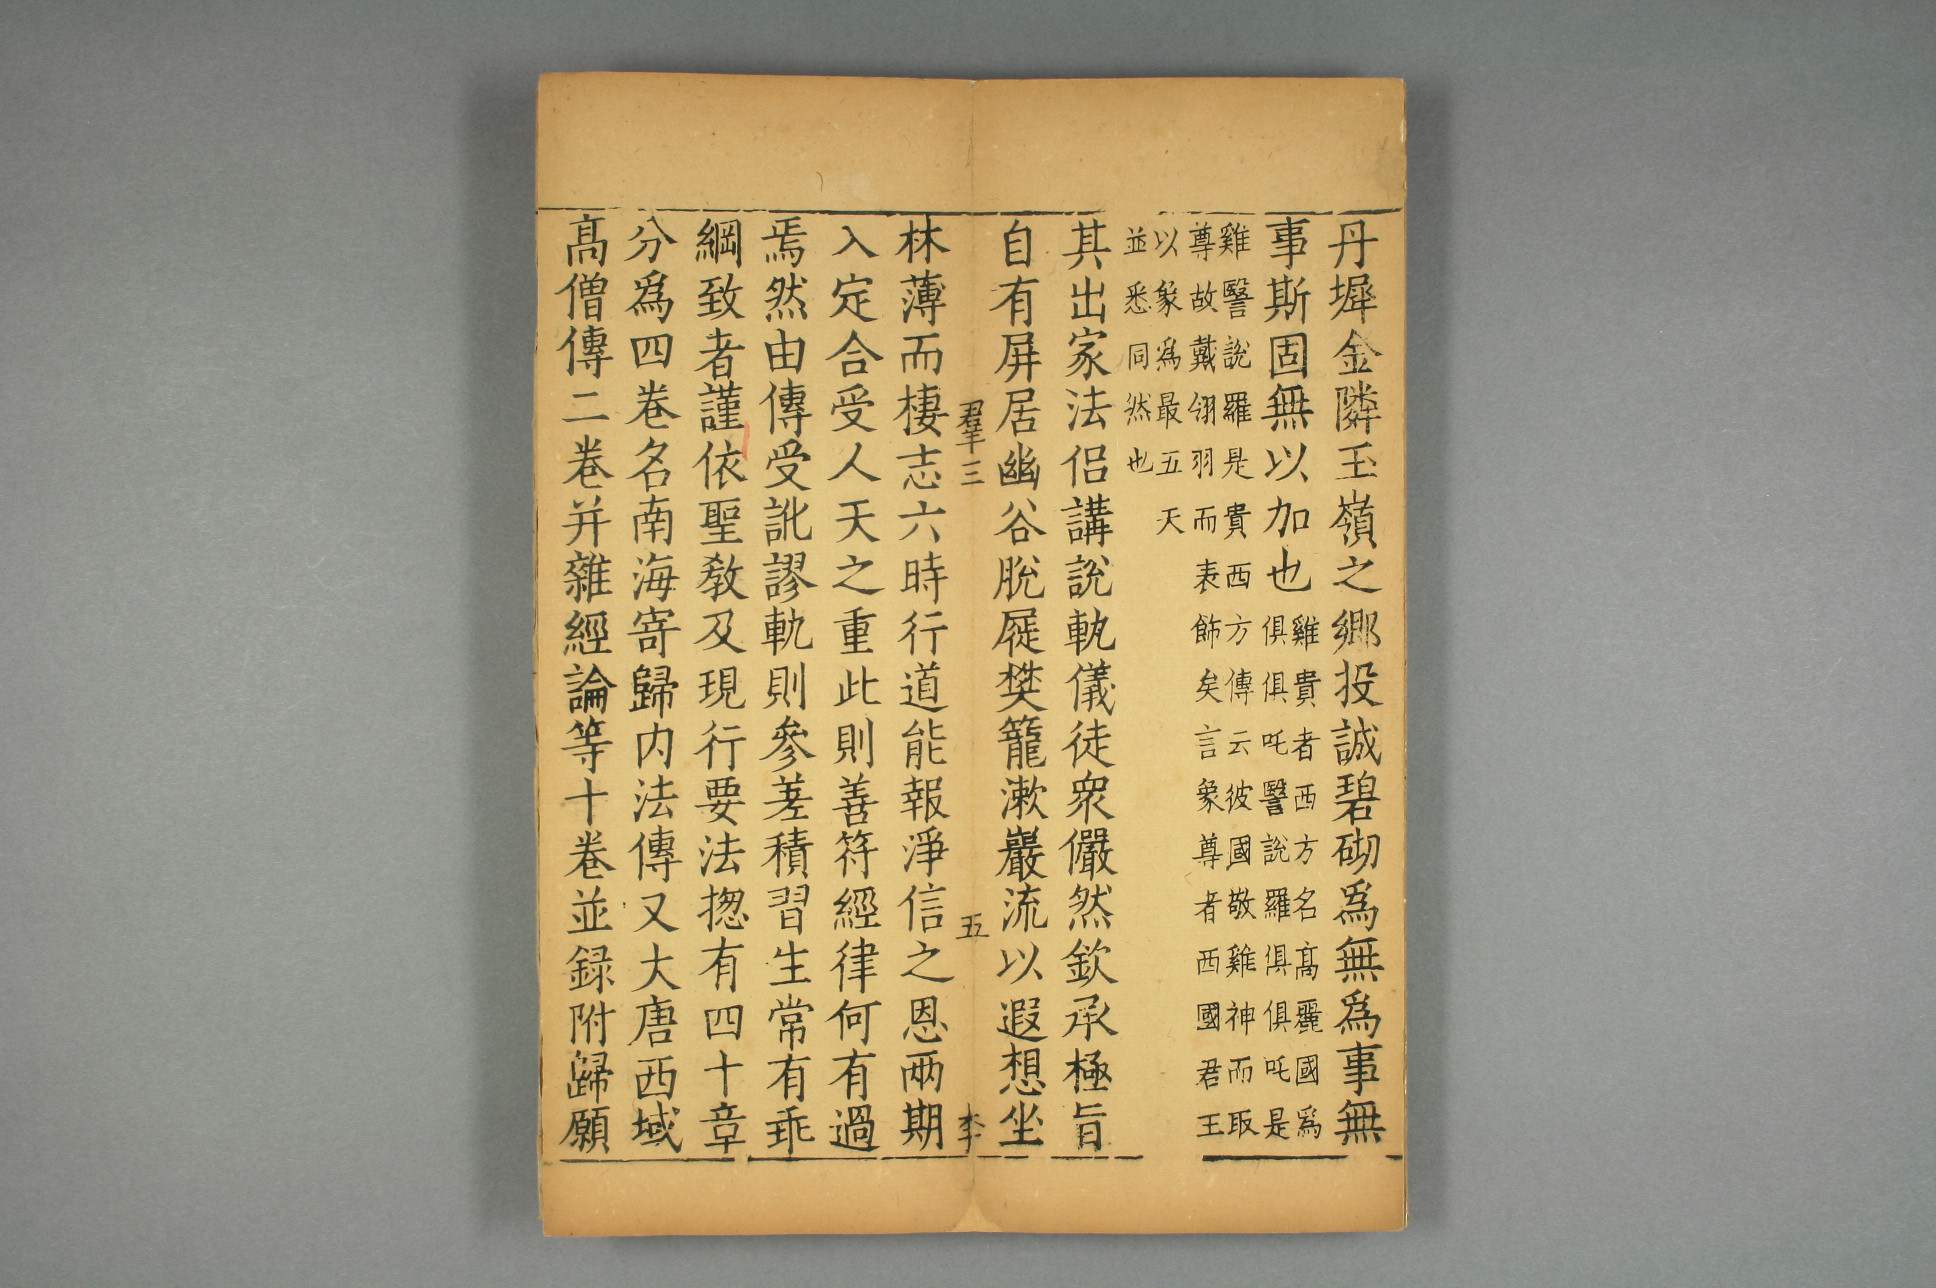 丹墀金隣玉嶺之鄉投誠碧砌爲無爲事無
事斯固無以加也
雞貴者西方名高麗國爲
俱俱吒䃜說羅俱俱吒是
雞䃜說羅是貴西方傳云彼國敬雞神而取
尊故戴翎羽而表飾矣言象尊者西國君王
以象爲最五天
並悉同然也
其出家法侣講說軌儀徒衆儼然欽承極旨
自有屏居幽谷脫屣樊籠漱巖流以遐想坐
羣三
五
李
林薄而棲志六時行道能報淨信之恩兩期
入定合受人天之重此則善符經律何有過
焉然由傳受訛謬軌則參差積習生常有乖
綱致者謹依聖教及現行要法揔有四十章
分爲四卷名南海寄歸内法傳又大唐西域
高僧傳二卷并雜經論等十卷並録附歸願